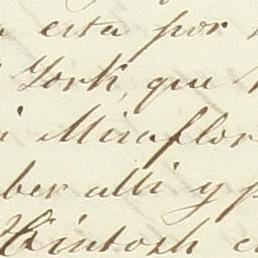 esta por
York, que
Miraflor
ber alli y p
Kintosh